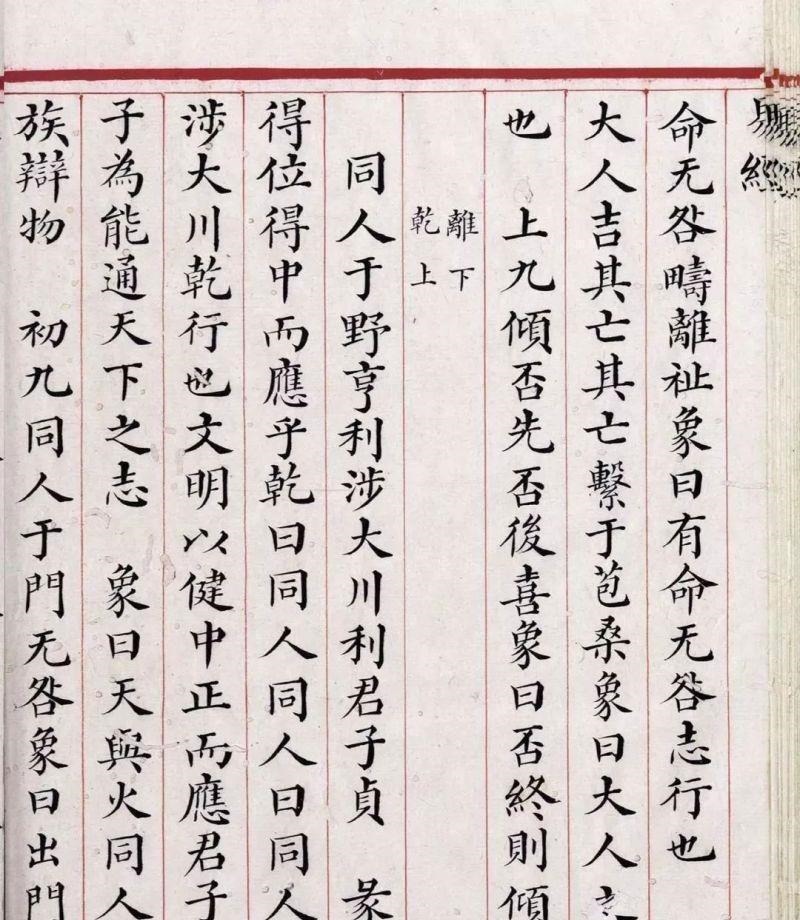 命无咎疇離祉象曰有命无咎志行也
大人吉其亡其亡繫于苞桑象曰大人
也　上九傾否先否後喜象曰否終則傾
離下
乾上
同人于野亨利涉大川利君子貞　彖
得位得中而應乎乾曰同人同人曰同人
涉大川乾行也文明以健中正而應君子
子為能通天下之志　象曰天與火同人
族辯物　初九同人于門无咎象曰出門